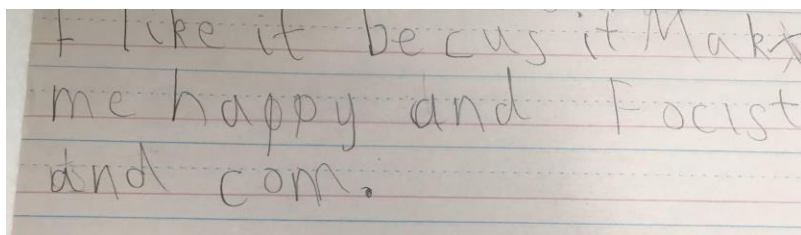 I like it becus it Makt
me happy and Focist
and com.